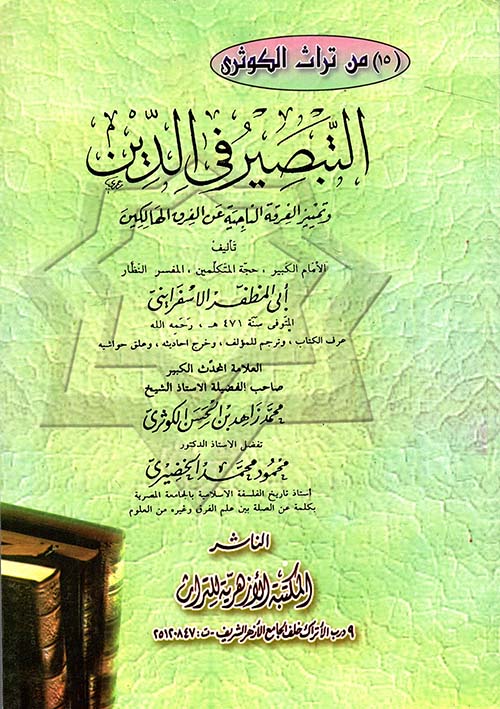 (١٥) من تراث الكوثرى
التبصير في الدين
وتمييز الفرقة الناجية عن الفرق الهالكين
تأليف
الأمام الكبير ، حجة المتكلمين ، المفسر النظار
أبى المظفر الاسفراينى
المتوفى سنة ٤٧١ هـ ، رحمه الله
عرف الكتاب ، وترجم للمؤلف ، وخرج احاديثه ، وعلق حواشيه
العلامة المحدث الكبير
صاحب الفضيلة الاستاذ الشيخ
محمد زاهد بن الحسن الكوثرى
تفضل الاستاذ الدكتور
محمود محمد الخضيرى
أستاذ تاريخ الفلسفة الاسلامية بالجامعة المصرية
بكلمة عن الصلة بين علم الفرق وغيره من العلوم
الناشر
المكتبة الأزهرية للتراث
٩ درب الأتراك خلف الجامع الأزهر الشريف - ت : ٢٥١٢٠٨٤٧